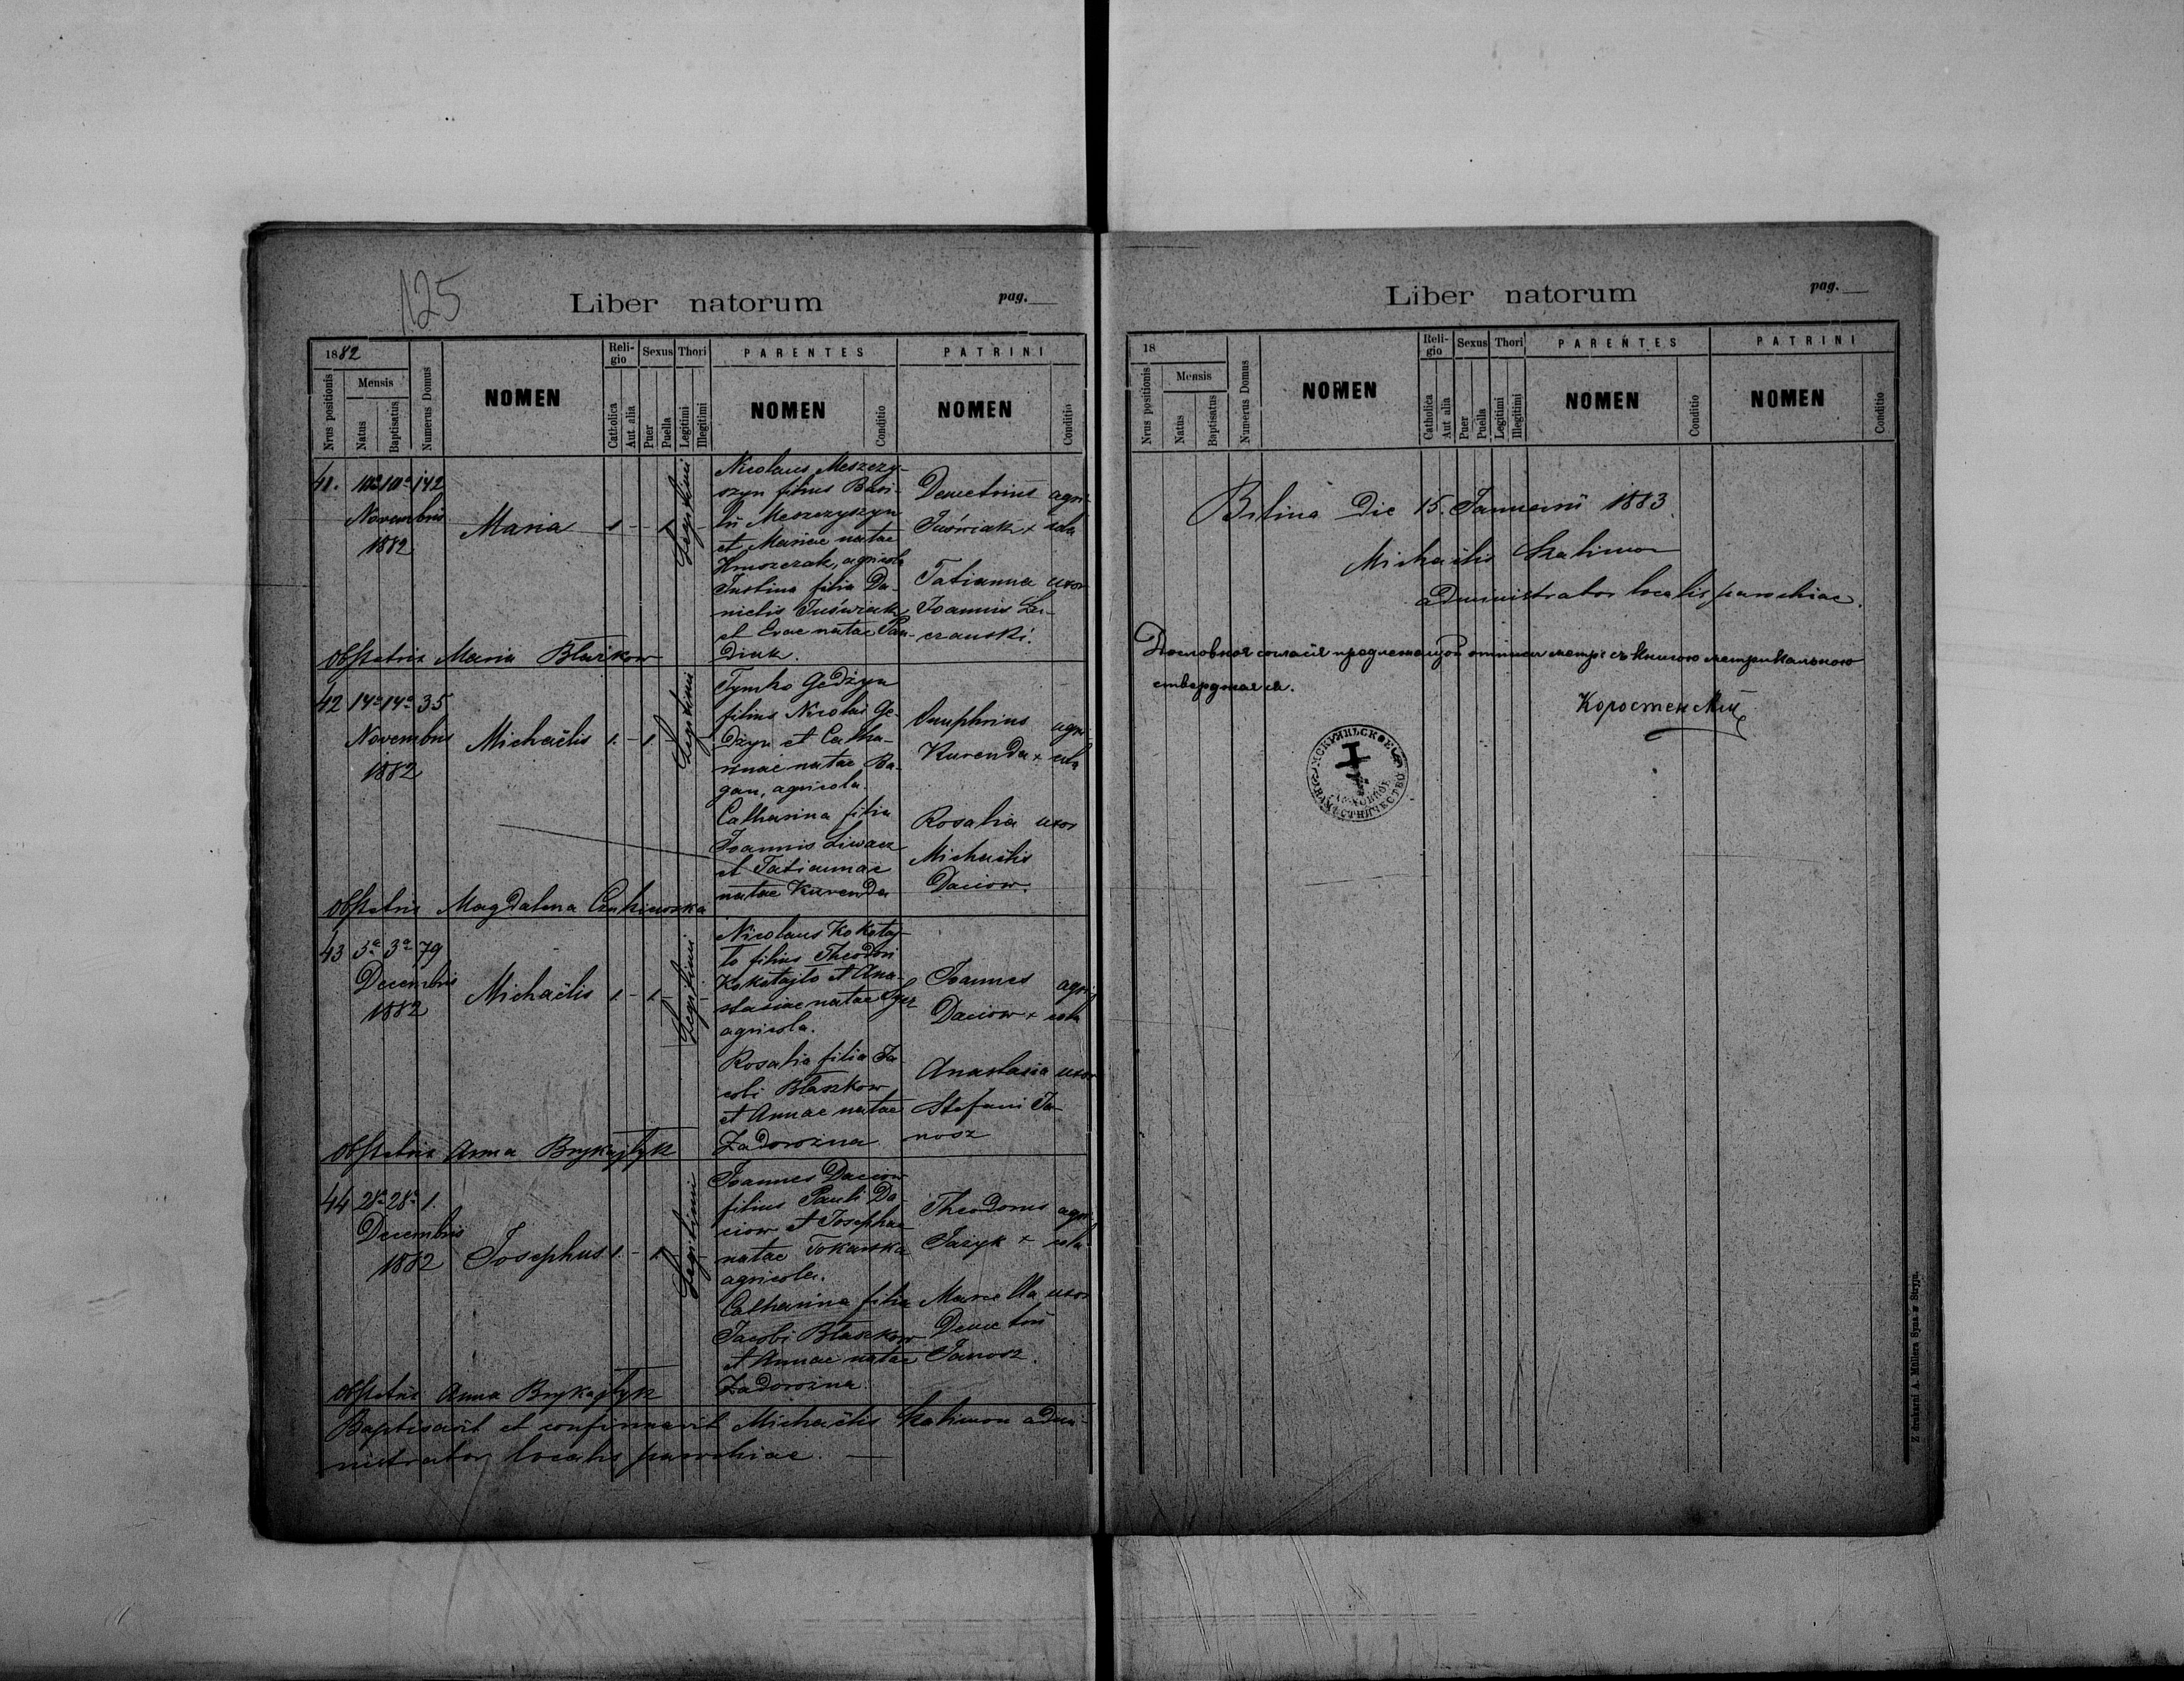 125
Liber natorum
pag.
1882
Nrus positionis
Mensis
Natus
Baptisatus
Numerus Domus
NOMEN
Religio
Catholica
Aut. alia
Sexus
Puer
Puella
Thori
Legitimi
Illegitimi
PARENTES
NOMEN
Conditio
PATRINI
NOMEN
Conditio
41. 10a 10a 142
Novembris
1882
Maria
1 - - 1
Legitimi
Nicolaus Meszczy-
szyn filius Basi-
lii Meszczyszyn
et Mariae natae
Hruszczak, agricola
Justina filia Da-
nielis Juświak
et Evae natae Pan-
diuk.
Demetrius agri-
Juświak + cola
Tatianna uxor
Joannis
czanski.
Obstetrix Maria Błażkow
42 14a 14a 35
Novembris
1882
Michaëlis
1. - 1.
Legitimi
Tymko Gedżyn
filius Nicolai Ge-
dżyn et Catha-
rinae natae Ba-
gan, agricola.
Catharina filia
Joannis Liwacz
et Tatiannae
natae Kurenda
Onuphrius agri-
Kurenda + cola
Rosalia uxor
Michaëlis
Daciow.
Obstetrix Magdalena
43 3a 3a 79
Decembris
1882
Michaëlis
1 - 1.
Legitimi
Nicolaus Kokotaj-
ło filius Theodori
Kokotajło et Ana-
stasiae natae
agricola.
Rosalia filia Ja-
cobi Błaszkow
et Annae natae
Zadorożna
Joannes agri-
Daciow + cola
Anastasia uxor
Stefani Ja-
nosz
Obstetrix Anna Brykajłyk
44 28a 28a 1.
Decembris
1882
Josephus
1. - 1.
Legitimi
Joannes Daciow
filius Pauli Da-
ciow et Josephae
natae Tokarska
agricola.
Catharina filia
Jacobi Błaszkow
et Annae natae
Zadorożna.
Theodorus agri-
Jazyk + cola
Marcella uxor
Demetrii
Janosz.
Obstetrix Anna Brykajłyk
Baptisavit et confirmavit Michaëlis Skalimon admi-
nistrator localis parochiae.
Liber natorum
pag.
18
Nrus positionis
Mensis
Natus
Baptisatus
Numerus Domus
NOMEN
Religio
Catholica
Aut alia
Sexus
Puer
Puella
Thori
Legitimi
Illegitimi
PARENTES
NOMEN
Conditio
PATRINI
NOMEN
Conditio
Bilina Die 15. Januarii 1883.
Michaëlis Skalimon
administrator localis parochiae.
Дословное согласіе предлежащой отписи метр. съ книгою метрикальною
стверджаеся.
Коростенскій
НАМѢСТНИЧЕСТВО
Z drukarni A. Müllera Syna w Stryju.